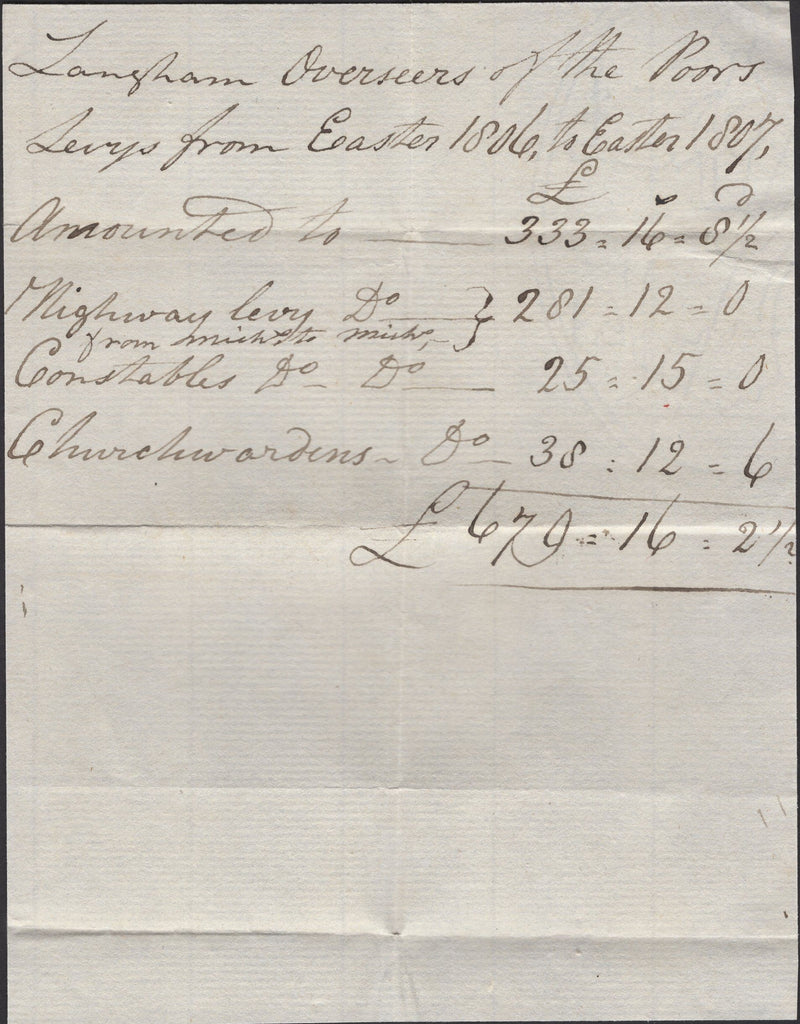 Langham Overseers of the Poors
Levys from Easter 1806, to Easter 1807,
£ s d
Amounted to — 333 = 16 = 8 1/2
Highway levy Do — } 281 = 12 = 0
from Michs to Michs,
Constables Do — Do — 25 = 15 = 0
Churchwardens — Do — 38 = 12 = 6
£ 679 = 16 = 2 1/2